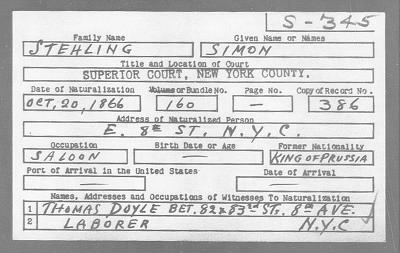 S-345
Family Name Given Name or Names
STEHLING SIMON
Title and Location of Court
SUPERIOR COURT, NEW YORK COUNTY.
Date of Naturalization Volume or Bundle No. Page No. Copy of Record No.
OCT, 20, 1866 160 — 386
Address of Naturalized Person
E. 8E ST. N.Y.C.
Occupation Birth Date or Age Former Nationality
SALOON — KING OF PRUSSIA
Port of Arrival in the United States Date of Arrival
— —
Names, Addresses and Occupations of Witnesses To Naturalization
1 THOMAS DOYLE BET. 82 & 83RD STS. 8TH AVE.
2 LABORER N.Y.C